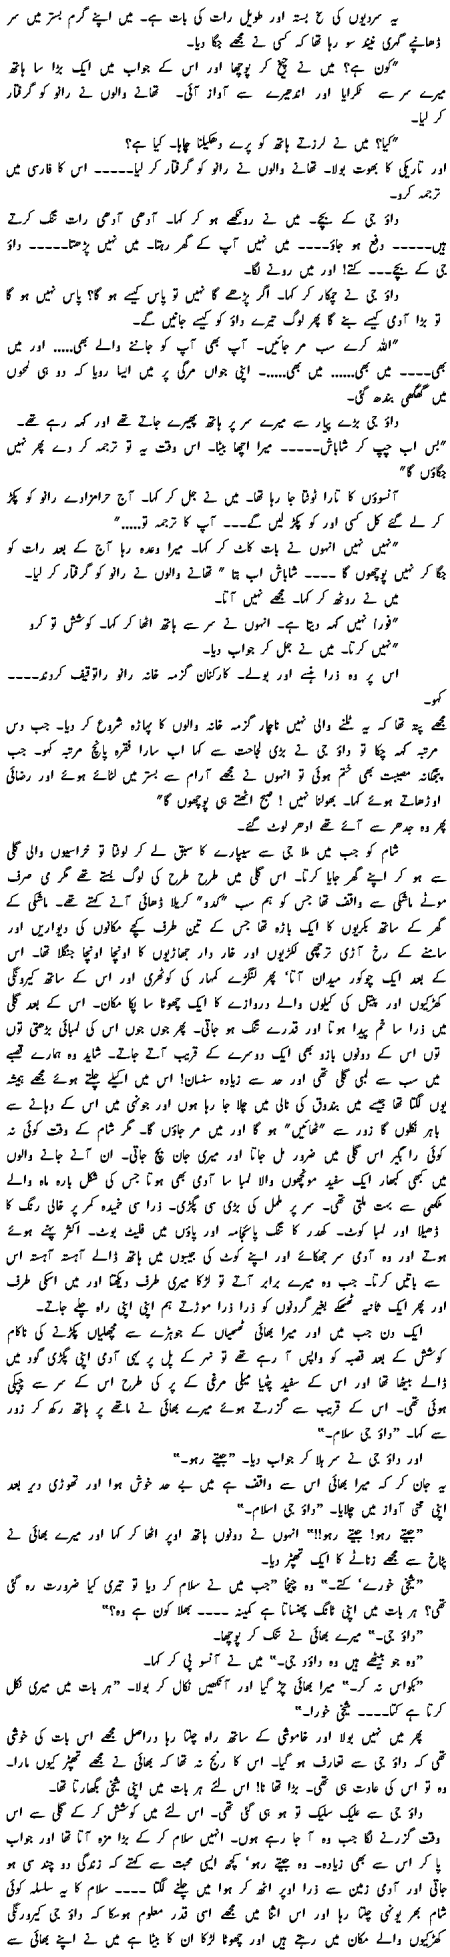 یہ سردیوں کی یخ بستہ اور طویل رات کی بات ہے۔ میں اپنے گرم بستر میں سر
ڈھانپے گہری نیند سو رہا تھا کہ کسی نے مجھے جگا دیا۔
"کون ہے؟ میں نے چیخ کر پوچھا اور اس کے جواب میں ایک بڑا سا ہاتھ
میرے سر سے ٹکرایا اور اندھیرے سے آواز آئی۔ تھانے والوں نے رانو کو گرفتار
کر لیا۔
"کیا؟ میں نے لرزتے ہاتھ کو پرے دھکیلنا چاہا۔ کیا ہے؟
اور تاریکی کا بھوت بولا۔ تھانے والوں نے رانو کو گرفتار کر لیا۔---- اس کا فارسی میں
ترجمہ کرو۔
داؤ جی کے بچے۔ میں نے روہکھے ہو کر کہا۔ آدھی آدھی رات تنگ کرتے
ہیں۔---- دفع ہو جاؤ۔--- میں نہیں آپ کے گھر رہتا۔ میں نہیں پڑھتا۔---- داؤ
جی کے بچے۔-- کتے! اور میں رونے لگا۔
داؤ جی نے چمکار کر کہا۔ اگر پڑھے گا نہیں تو پاس کیسے ہو گا؟ پاس نہیں ہو گا
تو بڑا آدمی کیسے بنے گا پھر لوگ تیرے داؤ کو کیسے جانیں گے۔
"اللہ کرے سب مر جائیں۔ آپ بھی آپ کو جاننے والے بھی..... اور میں
بھی۔--- میں بھی...... میں بھی.....۔ اپنی جواں مرگی پر میں ایسا رویا کہ دو ہی لمحوں
میں گھگھی بندھ گئی۔
داؤ جی بڑے پیار سے میرے سر پر ہاتھ پھیرے جاتے تھے اور کہہ رہے تھے۔
"بس اب چپ کر شاباش۔---- میرا اچھا بیٹا۔ اس وقت یہ تو ترجمہ کر دے پھر نہیں
جگاؤں گا"
آنسوؤں کا تارا ٹوٹتا جا رہا تھا۔ میں نے جل کر کہا۔ آج حرامزادے رانو کو پکڑ
کر لے گئے کل کسی اور کو پکڑ لیں گے۔-- آپ کا ترجمہ تو....."
"نہیں نہیں انہوں نے بات کاٹ کر کہا۔ میرا وعدہ رہا آج کے بعد رات کو
جگا کر نہیں پوچھوں گا ---- شاباش اب بتا " تھانے والوں نے رانو کو گرفتار کر لیا۔
میں نے روٹھ کر کہا۔ مجھے نہیں آتا۔
"فوراً نہیں کہہ دیتا ہے۔ انہوں نے سر سے ہاتھ اٹھا کر کہا۔ کوشش تو کرو
"نہیں کرتا۔ میں نے جل کر جواب دیا۔
اس پر وہ ذرا ہنسے اور بولے۔ کارکنان گزمہ خانہ رانو راتوقیف کردند۔---
کہو۔
مجھے پتہ تھا کہ یہ ٹلنے والی نہیں ناچار گزمہ خانہ والوں کا پہاڑہ شروع کر دیا۔ جب دس
مرتبہ کہہ چکا تو داؤ جی نے بڑی لجاحت سے کہا اب سارا فقرہ پانچ مرتبہ کہو۔ جب
پنجگانہ مصیبت بھی ختم ہوئی تو انہوں نے مجھے آرام سے بستر میں لٹاتے ہوئے اور رضائی
اوڑھاتے ہوئے کہا۔ بھولنا نہیں ! صبح اٹھتے ہی پوچھوں گا"
پھر وہ جدھر سے آئے تھے ادھر لوٹ گئے۔
شام کو جب میں ملا جی سے سیپارے کا سبق لے کر لوٹتا تو خراسیوں والی گلی
سے ہو کر اپنے گھر جایا کرتا۔ اس گلی میں طرح طرح کی لوگ بستے تھے مگر می صرف
موٹے ماشکی سے واقف تھا جس کو ہم سب "کدو" کریلا ڈھائی آنے کہتے تھے۔ ماشکی کے
گھر کے ساتھ بکریوں کا ایک باڑہ تھا جس کے تین طرف کچے مکانوں کی دیواریں اور
سامنے کے رخ آڑی ترچھی لکڑیوں اور خار دار جھاڑیوں کا اونچا اونچا جنگلا تھا۔ اس
کے بعد ایک چوکور میدان آتا' پھر لنگڑے کمہار کی کوٹھری اور اس کے ساتھ کیرونگی
کھڑکیوں اور پیتل کی کیلوں والے دروازے کا ایک چھوٹا سا پکا مکان۔ اس کے بعد گلی
میں ذرا سا خم پیدا ہوتا اور قدرے تنگ ہو جاتی۔ پھر جوں جوں اس کی لمبائی بڑھتی توں
توں اس کے دونوں بازو بھی ایک دوسرے کے قریب آتے جاتے۔ شاید وہ ہمارے قصبے
میں سب سے لمبی گلی تھی اور حد سے زیادہ سنسان! اس میں اکیلے چلتے ہوئے مجھے ہمیشہ
یوں لگتا تھا جیسے میں بندوق کی نالی میں چلا جا رہا ہوں اور جونہی میں اس کے دہانے سے
باہر نکلوں گا زور سے "ٹھائیں" ہو گا اور میں مر جاؤں گا۔ مگر شام کے وقت کوئی نہ
کوئی راہگیر اس گلی میں ضرور مل جاتا اور میری جان بچ جاتی۔ ان آنے جانے والوں
میں کبھی کبھار ایک سفید مونچھوں والا لمبا سا آدمی بھی ہوتا جس کی شکل بارہ ماہ والے
ملکھی سے بہت ملتی تھی۔ سر پر ململ کی بڑی سی پگڑی۔ ذرا سی خمیدہ کمر پر خاکی رنگ کا
ڈھیلا اور لمبا کوٹ۔ کھدر کا تنگ پائجامہ اور پاؤں میں فلیٹ بوٹ۔ اکثر پہنے ہوئے
ہوتے اور وہ آدمی سر جھکائے اور اپنے کوٹ کی جیبوں میں ہاتھ ڈالے آہستہ آہستہ اس
سے باتیں کرتا۔ جب وہ میرے برابر آتے تو لڑکا میری طرف دیکھتا اور میں اسکی طرف
اور پھر ایک ثانیہ ٹھٹھکے بغیر گردنوں کو ذرا ذرا موڑتے ہم اپنی اپنی راہ چلے جاتے۔
ایک دن جب میں اور میرا بھائی ٹھسمیاں کے جوہڑے سے مچھلیاں پکڑنے کی ناکام
کوشش کے بعد قصبہ کو واپس آ رہے تھے تو نہر کے پل پر یہی آدمی اپنی پگڑی گود میں
ڈالے بیٹھا تھا اور اس کے سفید چٹیا میلی مرغی کے پر کی طرح اس کے سر سے چپکی
ہوئی تھی۔ اس کے قریب سے گزرتے ہوئے میرے بھائی نے ماتھے پر ہاتھ رکھ کر زور
سے کہا۔ "داؤ جی سلام۔"
اور داؤ جی نے سر ہلا کر جواب دیا۔ "جیتے رہو۔"
یہ جان کر کہ میرا بھائی اس سے واقف ہے میں بے حد خوش ہوا اور تھوڑی دیر بعد
اپنی منحنی آواز میں چلایا۔ "داؤ جی اسلام۔"
"جیتے رہو! جیتے رہو!!" انہوں نے دونوں ہاتھ اوپر اٹھا کر کہا اور میرے بھائی نے
پٹاخ سے مجھے زناٹے کا ایک تھپڑ دیا۔
"شیخی خورے' کتے۔" وہ چیخا "جب میں نے سلام کر دیا تو تیری کیا ضرورت رہ گئی
تھی؟ ہر بات میں اپنی ٹانگ پھنساتا ہے کمینہ ---- بھلا کون ہے وہ؟"
"داؤ جی۔" میرے بھائی نے تنک کر پوچھا۔
"وہ جو بیٹھے ہیں وہ داؤد جی۔" میں نے آنسو پی کر کہا۔
"بکواس نہ کر۔" میرا بھائی چڑ گیا اور آنکھیں نکال کر بولا۔ "ہر بات میں میری نکل
کرتا ہے کتا۔--- شیخی خورا۔"
پھر میں نہیں بولا اور خاموشی کے ساتھ راہ چلتا رہا دراصل مجھے اس بات کی خوشی
تھی کہ داؤ جی سے تعارف ہو گیا۔ اس کا رنج نہ تھا کہ بھائی نے مجھے تھپڑ کیوں مارا۔
وہ تو اس کی عادت ہی تھی۔ بڑا تھا نا! اس لئے ہر بات میں اپنی شیخی بگھارتا تھا۔
داؤ جی سے علیک سلیک تو ہو ہی گئی تھی۔ اس لئے میں کوشش کر کے گلی سے اس
وقت گزرنے لگا جب وہ آ جا رہے ہوں۔ انہیں سلام کر کے بڑا مزہ آتا تھا اور جواب
پا کر اس سے بھی زیادہ۔ وہ جیتے رہو' کچھ ایسی محبت سے کہتے کہ زندگی دو چند سی ہو
جاتی اور آدمی زمین سے ذرا اوپر اٹھ کر ہوا میں چلنے لگتا ---- سلام کا یہ سلسلہ کوئی
شام بھر یونہی چلتا رہا اور اس اثنا میں مجھے اسی قدر معلوم ہوسکا کہ داؤ جی کیرورنگی
کھڑکیوں والے مکان میں رہتے ہیں اور چھوٹا لڑکا ان کا بیٹا ہے میں نے اپنے بھائی سے